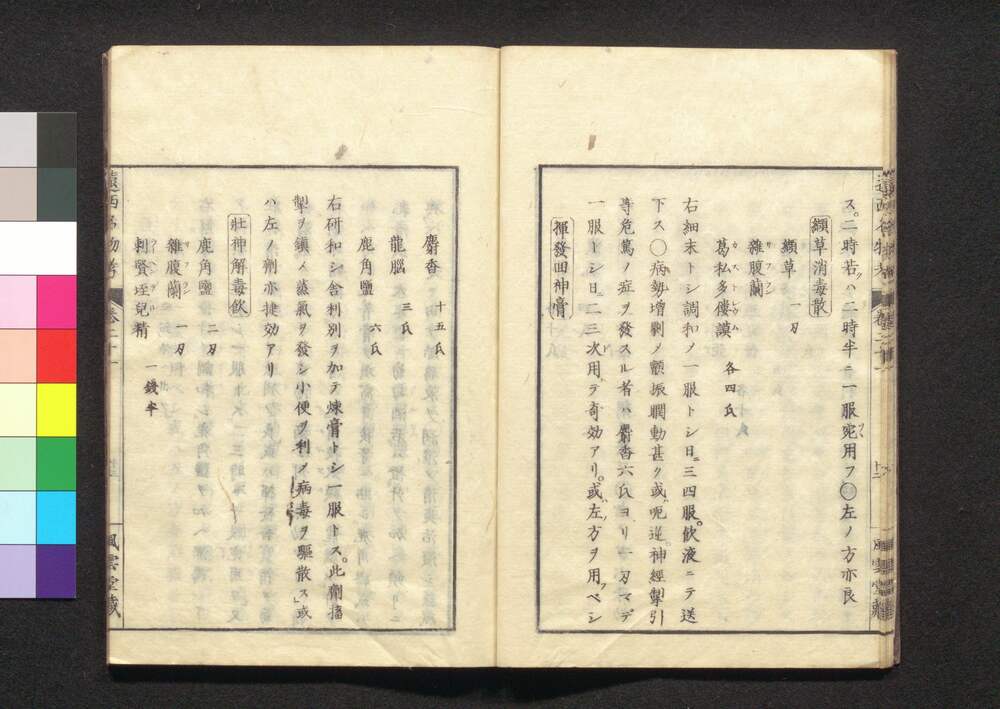 ス。二時若クハ二時半ニ一服宛用フ〇左ノ方亦良
纈草消毒散
纈草 一刃
雜腹蘭 サフラン
葛私多僂謨 カストレウム 各四氏
右細末トシ調和メ一服トシ日ニ三四服。飲液ニテ送
下ス〇病勢増劇メ顫振瞤動甚ク或ハ呃逆。神經掣引
等危篤ノ症ヲ發スル者ハ麝香六氏ヨリ一刃マデ
一服トシ日ニ二三次用テ奇効アリ。或ハ左方ヲ用ベシ
揮發回神膏
麝香 十五氏
龍腦 三氏
鹿角鹽 六氏
右研和シ舎利別ヲ加テ煉膏トシ一服トス。此劑搐
掣ヲ鎮メ蒸氣ヲ發シ小便ヲ利メ病毒ヲ驅散ス」或
ハ左ノ劑亦捷効アリ
壯神解毒飲
鹿角鹽 二刃
雜腹蘭 サフラン 一刃
刺賢垤兒精 一錢半
卷二十一
風雲堂藏